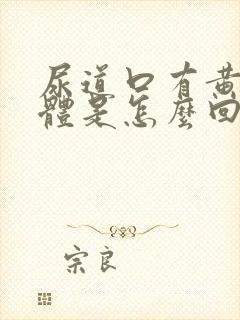 尿道口有黃
體是怎麼回
宗良